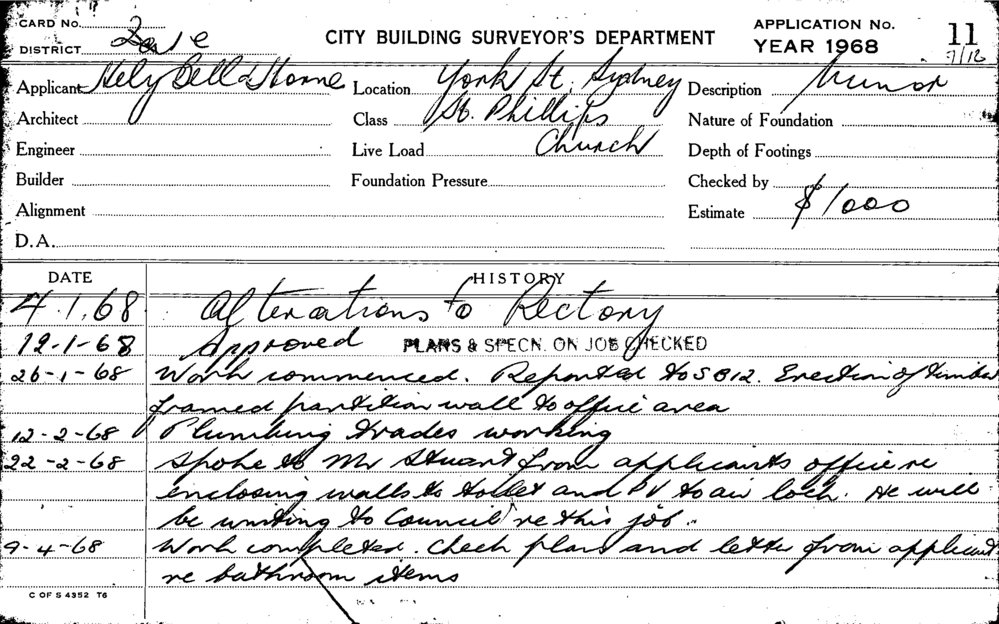 CARD No.
DISTRICT
CITY BUILDING SURVEYOR'S DEPARTMENT
APPLICATION No. 11
YEAR 1968
Applicant Hely Bell & Horne
Location York St, Sydney
Description Minor
Architect
Class St. Phillips
Nature of Foundation
Engineer
Live Load Church
Depth of Footings
Builder
Foundation Pressure
Checked by
Alignment
Estimate $1000
D.A.
DATE HISTORY
4.1.68 Alterations to Rectory
12-1-68 Approved PLANS & SPECN. ON JOB CHECKED
26-1-68 Work commenced. Reported to SB12. Erection of timber
framed partition wall to office area
12-2-68 Plumbing trades working
22-2-68 Spoke to Mr Stuart from applicants office re
enclosing walls to toilet and PV to air lock. He will
be writing to Council re this job.
9-4-68 Work completed. Check plans and letter from applicant
re bathroom items
C OF S 4352 T6